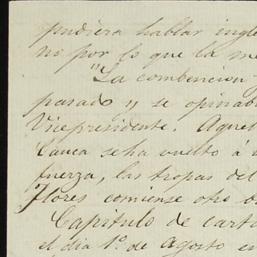 pudiera hablar ingle
ni por lo que la me
"La combencion
pasado" se opinab
Vicepresidente. Aquel
Cauca seha vuelto á
fuerza, las tropas del
Flores comiense otro
Capitulo de cart
el dia 1º de Agosto en